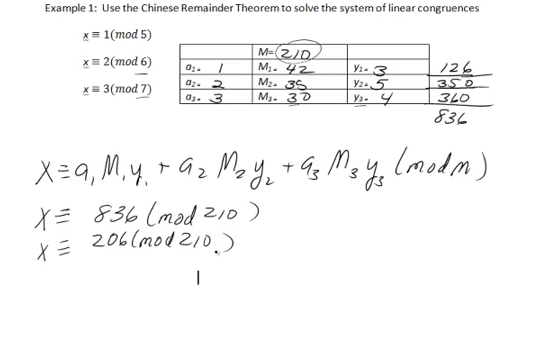 Example 1: Use the Chinese Remainder Theorem to solve the system of linear congruences
x ≡ 1(mod 5)
x ≡ 2(mod 6)
x ≡ 3(mod 7)
M= 210
a₁= 1 M₁= 42 y₁= 3 126
a₂= 2 M₂= 35 y₂= 5 350
a₃= 3 M₃= 30 y₃= 4 360
836
X ≡ a₁ M₁ y₁ + a₂ M₂ y₂ + a₃ M₃ y₃ (mod m)
X ≡ 836 (mod 210)
X ≡ 206 (mod 210)